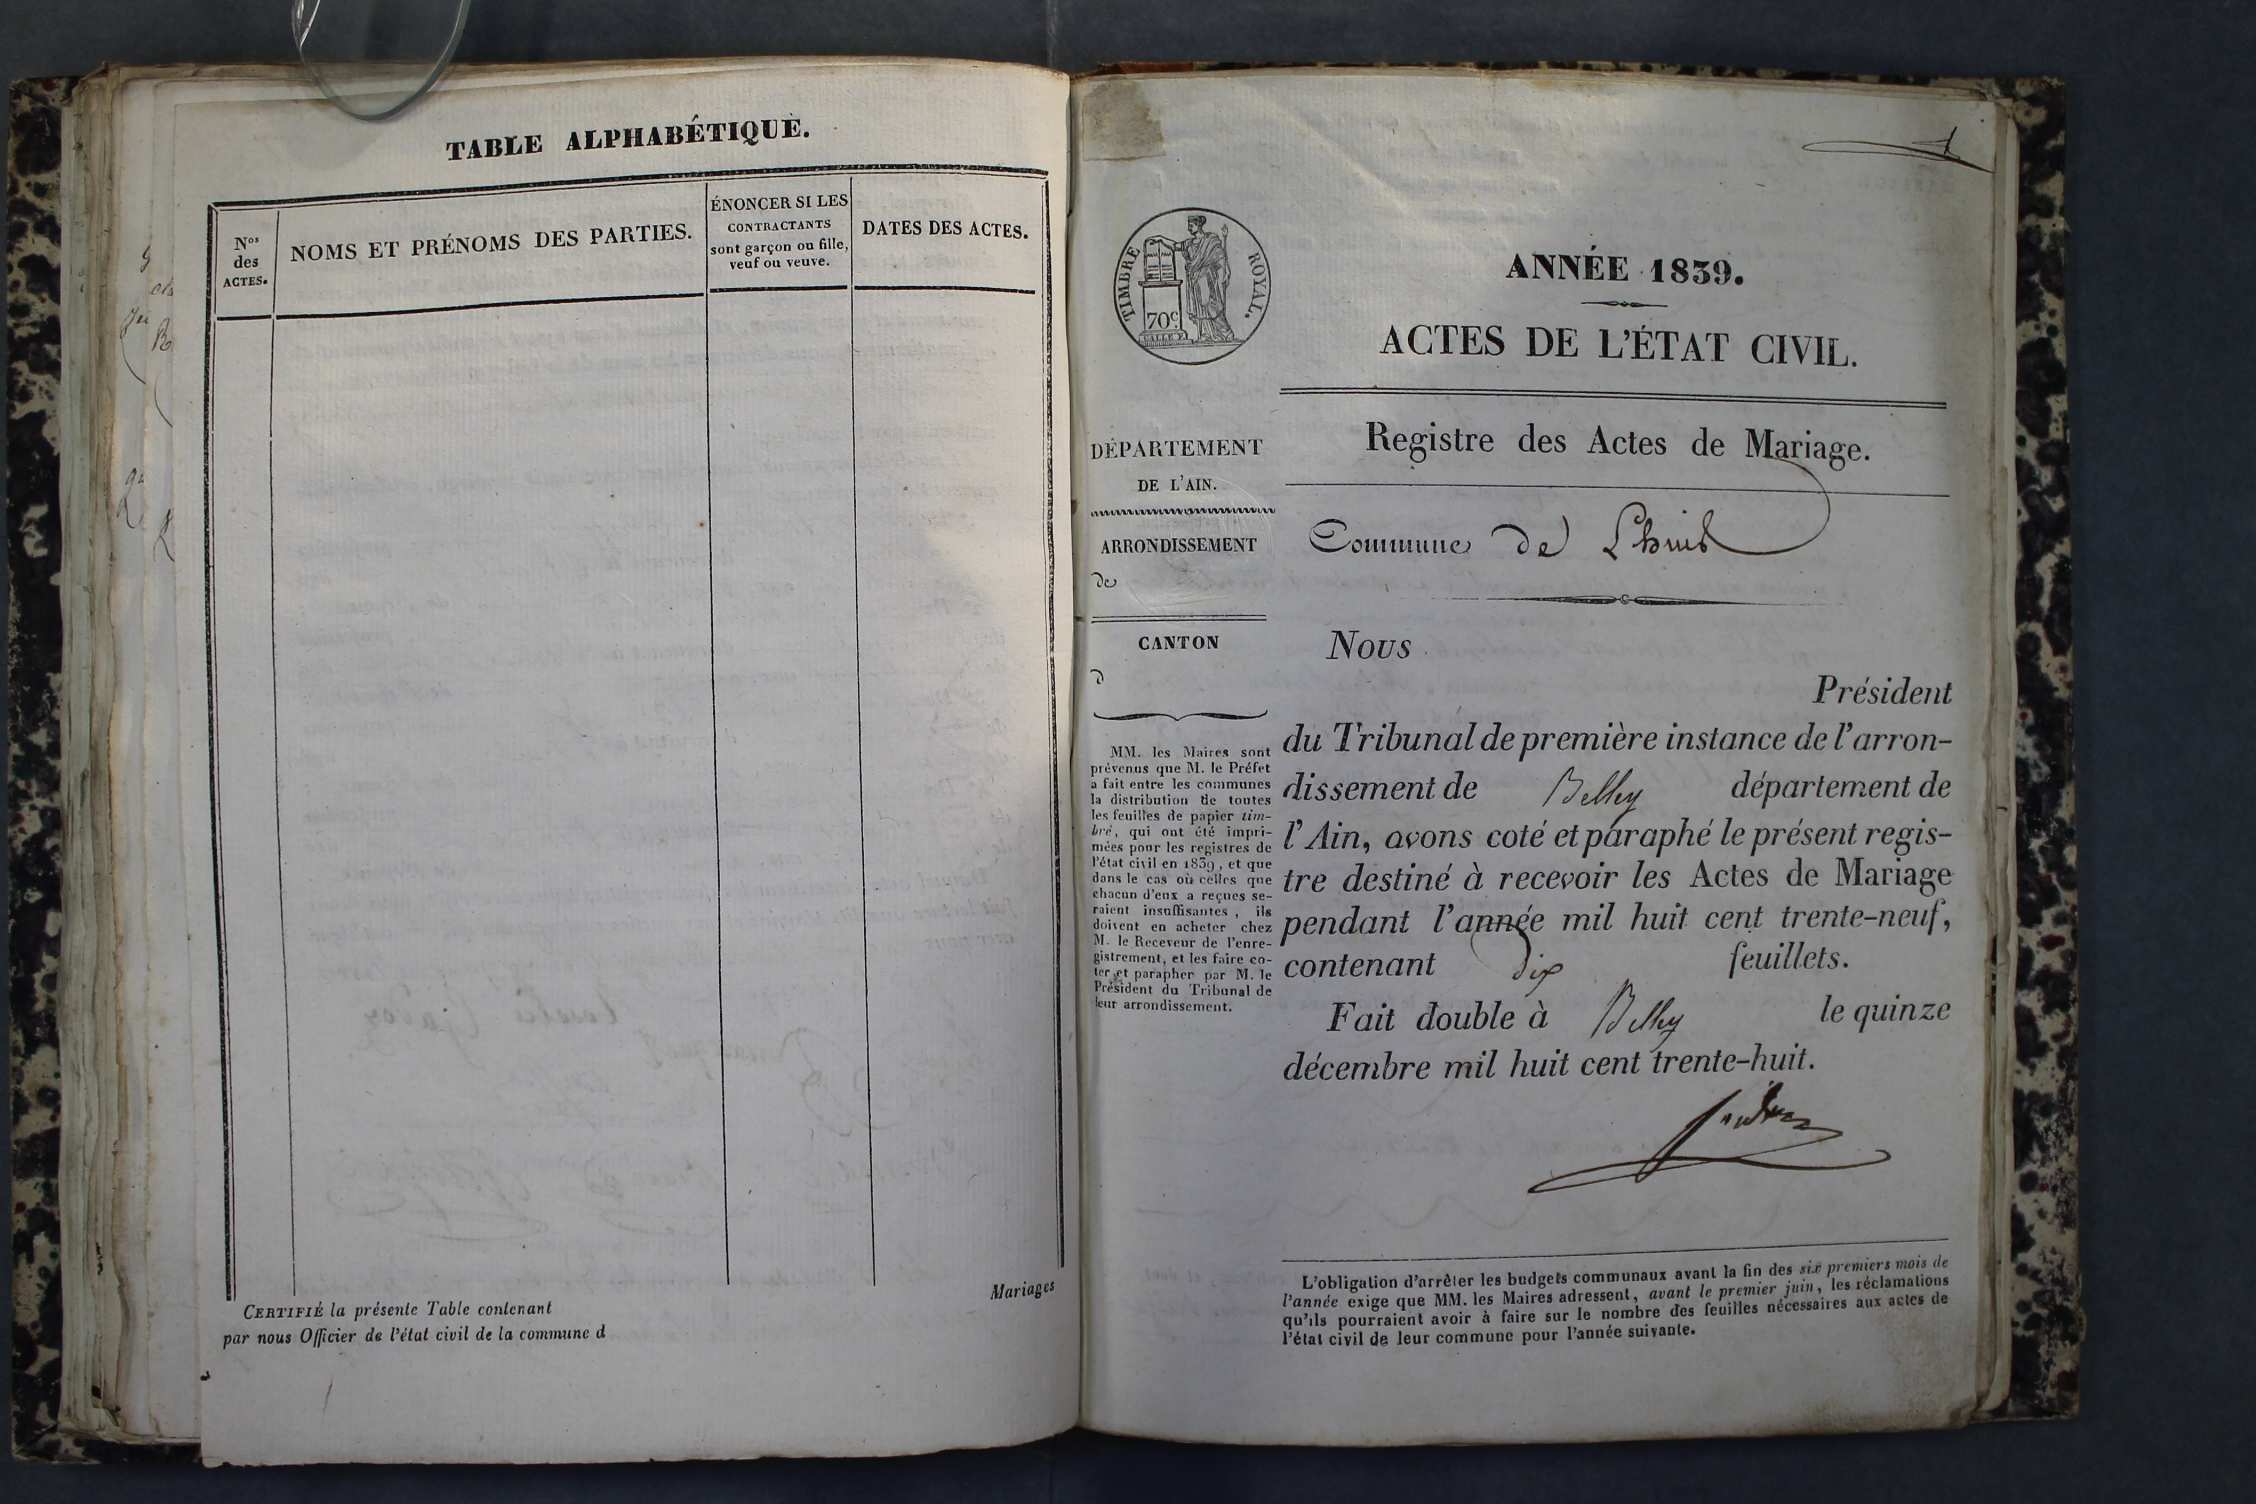 TABLE ALPHABÉTIQUE.
Nos
des
ACTES.
NOMS ET PRÉNOMS DES PARTIES.
ÉNONCER SI LES
CONTRACTANTS
sont garçon ou fille,
veuf ou veuve.
DATES DES ACTES.
Mariages
CERTIFIÉ la présente Table contenant
par nous Officier de l'état civil de la commune d
1
TIMBRE ROYAL.
70c
ANNÉE 1839.
ACTES DE L'ÉTAT CIVIL.
Registre des Actes de Mariage.
Commune de Lhuis
DÉPARTEMENT
DE L'AIN.
ARRONDISSEMENT
de
CANTON
d
MM. les Maires sont
prévenus que M. le Préfet
a fait entre les communes
la distribution de toutes
les feuilles de papier tim-
bré, qui ont été impri-
mées pour les registres de
l'état civil en 1839, et que
dans le cas où celles que
chacun d'eux a reçues se-
raient insuffisantes, ils
doivent en acheter chez
M. le Receveur de l'enre-
gistrement, et les faire co-
ter et parapher par M. le
Président du Tribunal de
leur arrondissement.
Nous
Président
du Tribunal de première instance de l'arron-
dissement de Belley département de
l'Ain, avons coté et paraphé le présent regis-
tre destiné à recevoir les Actes de Mariage
pendant l'année mil huit cent trente-neuf,
contenant dix feuillets.
Fait double à Belley le quinze
décembre mil huit cent trente-huit.
L'obligation d'arrêter les budgets communaux avant la fin des six premiers mois de
l'année exige que MM. les Maires adressent, avant le premier juin, les réclamations
qu'ils pourraient avoir à faire sur le nombre des feuilles nécessaires aux actes de
l'état civil de leur commune pour l'année suivante.